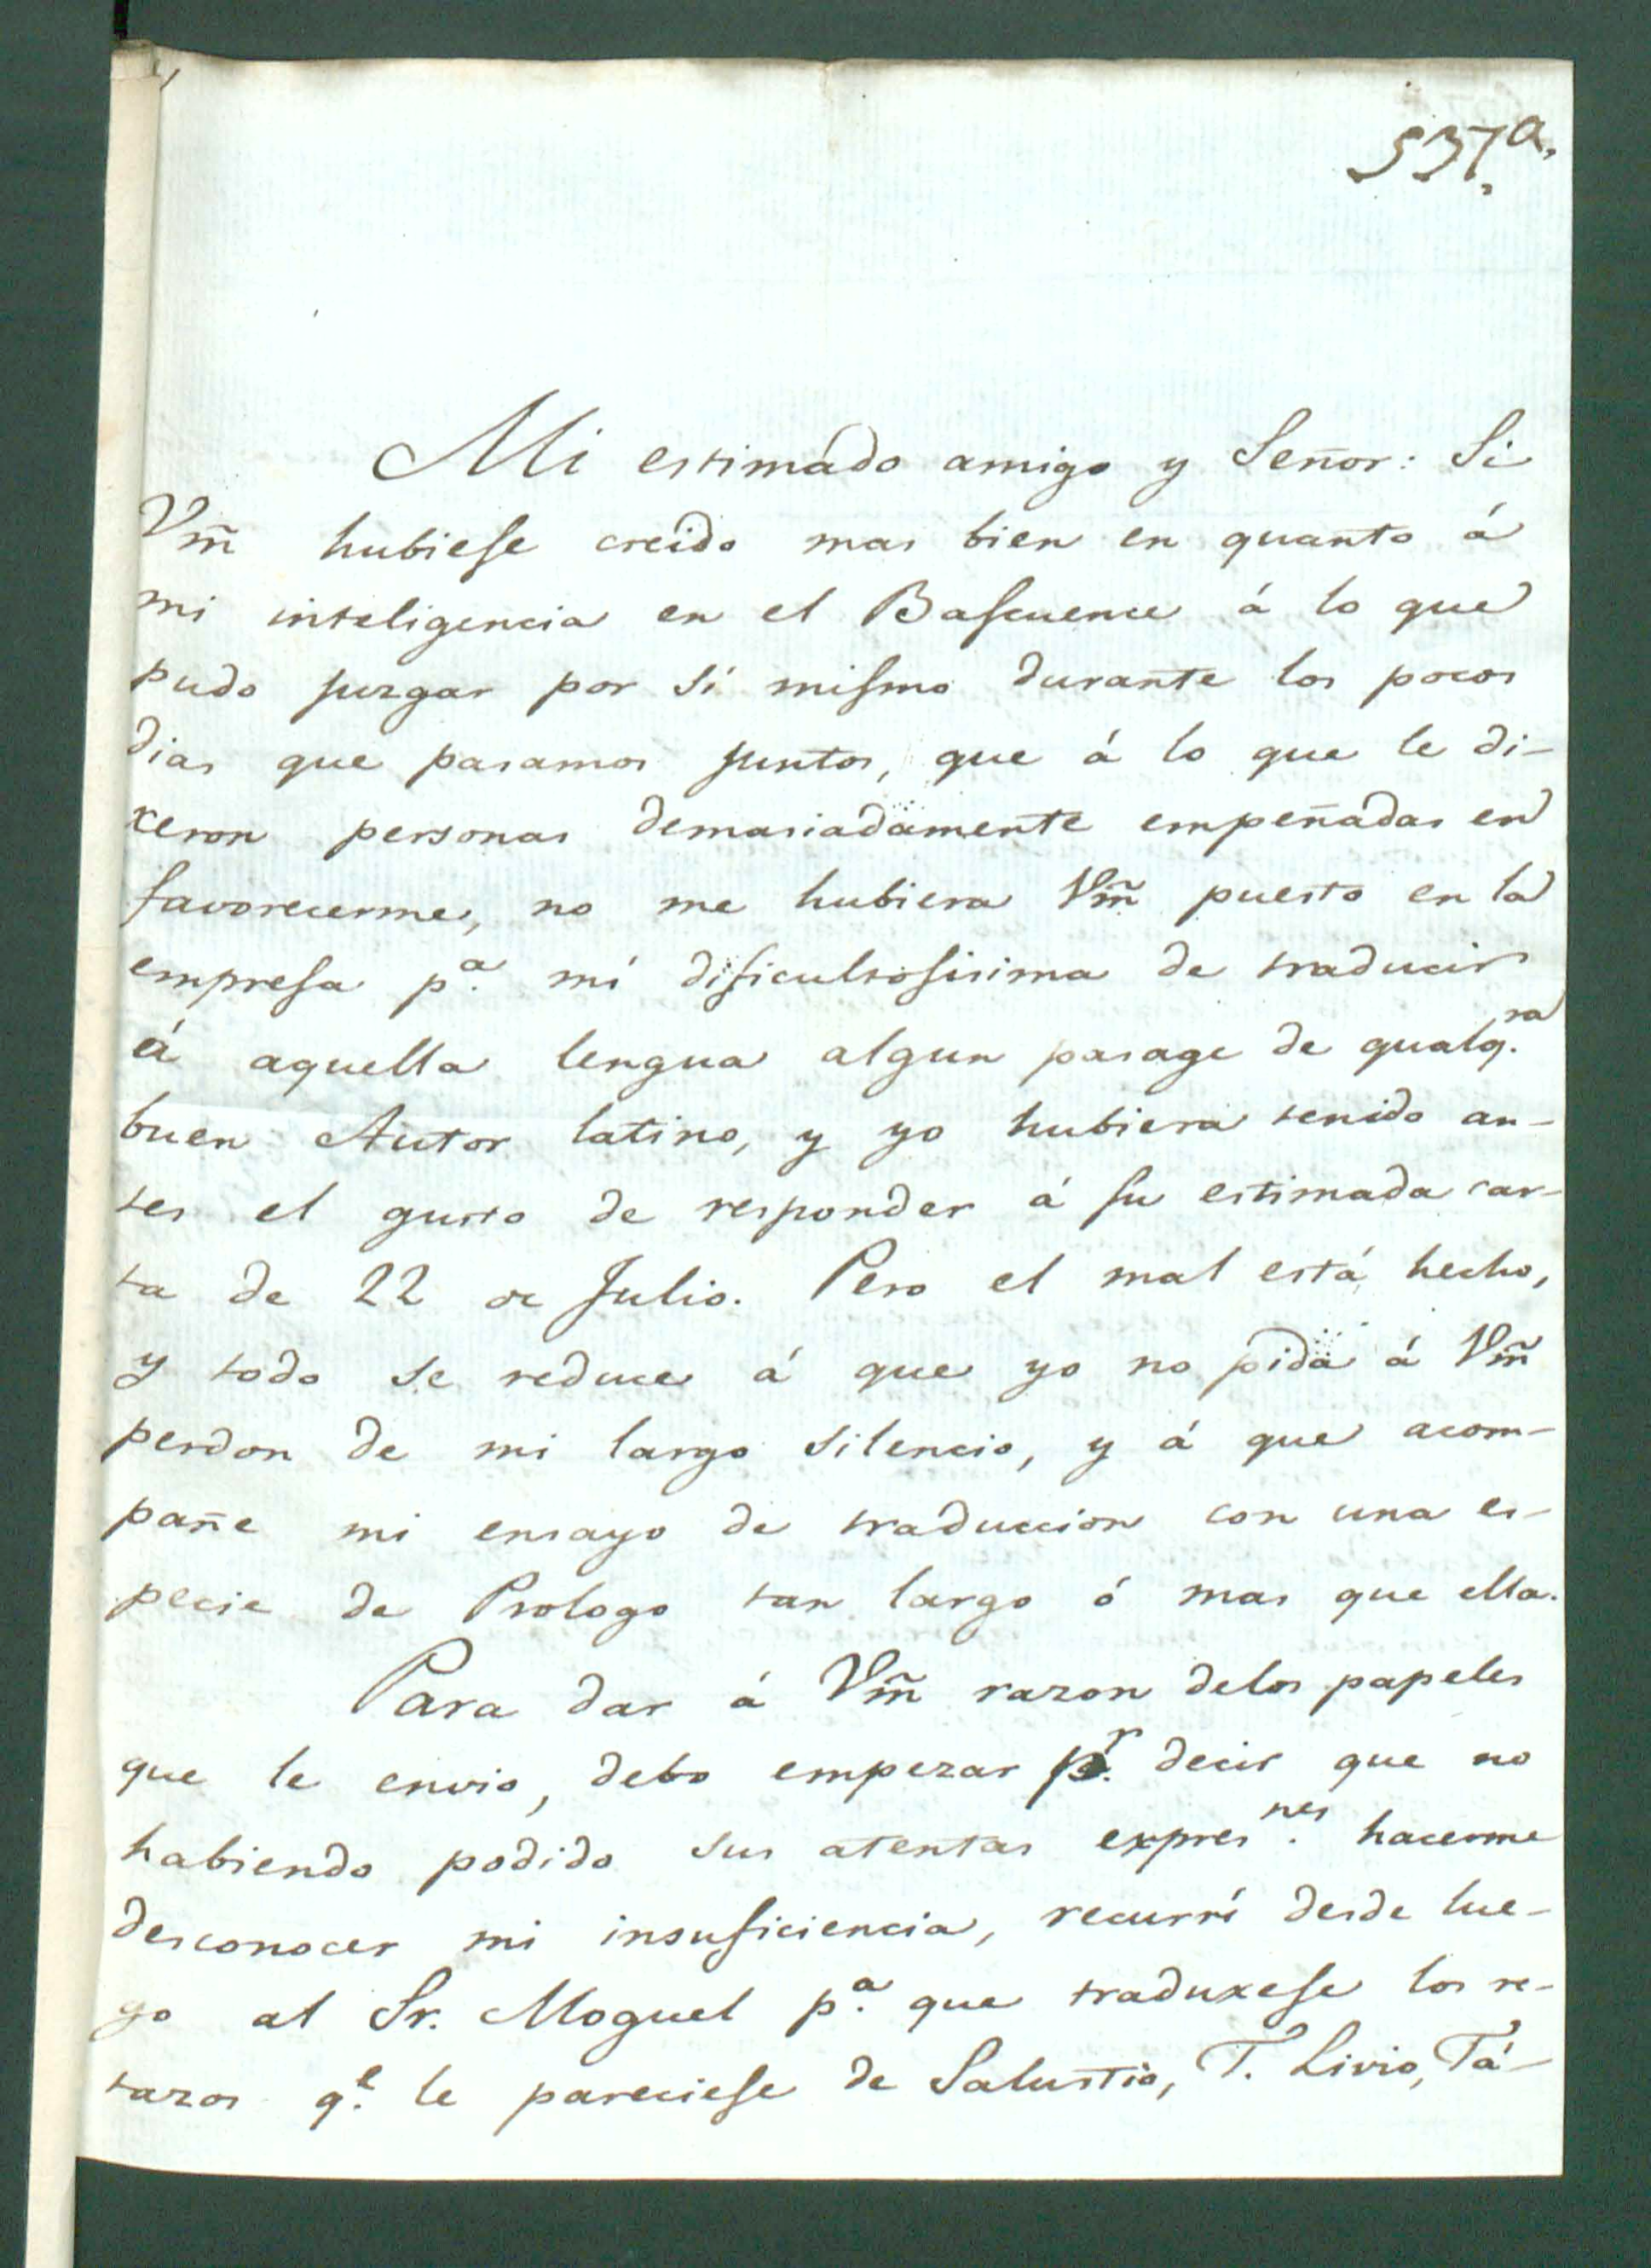 537,ª
Mi estimado amigo y Señor: Si
Vm̃ hubiese creido mas bien en quanto á
mi inteligencia en el Bascuence á lo que
pudo juzgar por sí mismo durante los pocos
dias que pasamos juntos, que á lo que le di-
xeron personas demasiadamente empeñadas en
favorecerme, no me hubiera Vm̃ puesto en la
empresa p.ª mí dificultosisima de traducir
á aquella lengua algun pasage de qualq.ra
buen Autor latino, y yo hubiera tenido an-
tes el gusto de responder á su estimada car-
ta de 22 de Julio. Pero el mal está hecho,
y todo se reduce á que yo no pida á Vm̃
perdon de mi largo silencio, y á que acom-
pañe mi ensayo de traduccion con una es-
pecie de Prologo tan largo ó mas que ella.
Para dar á Vm̃ razon delos papeles
que le envio, debo empezar p.r decir que no
habiendo podido sus atentas expres.nes hacerme
desconocer mi insuficiencia, recurrí desde lue-
go al Sr. Moguel p.ª que traduxese los re-
tazos q.e le pareciese de Salustio, T. Livio, Tá-